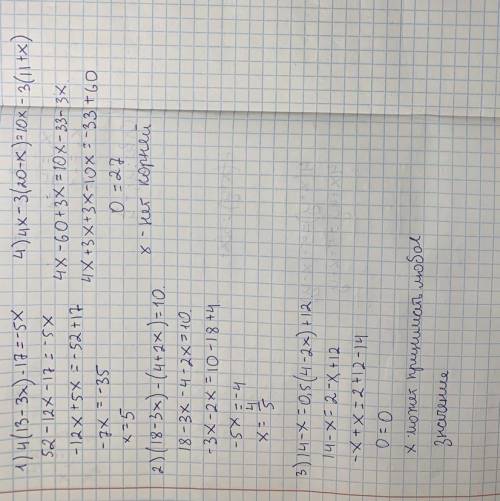 1) 4(13-3x)-17=-5x
52-12x-17=-5x
-12x+5x=-52+17
-7x=-35
x=5
2) (18-3x)-(4+2x)=10.
18-3x-4-2x=10.
-3x-2x=10-18+4
-5x=-4
x=4/5
3) 14-x=0,5(4-2x)+12.
14-x=2-x+12
-x+x=2+12-14
0=0
x может принимать любое
значение
4) 4x-3(20-x)=10x-3(11+x)
4x-60+3x=10x-33-3x
4x+3x+3x-10x=-33+60
0=27
x-нет корней